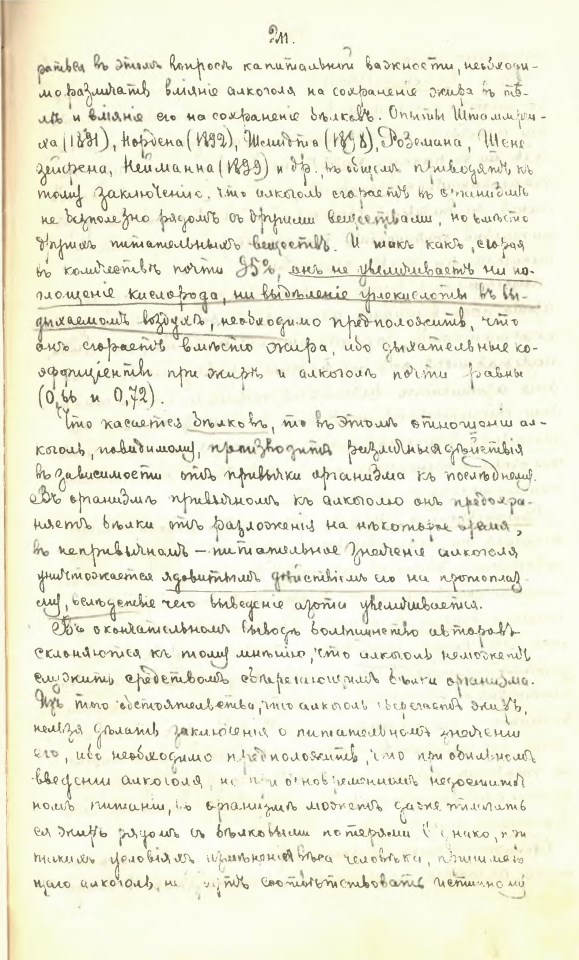 211.
раться въ этомъ вопросѣ капитальной важности, необходи-
мо различать вліяніе алкоголя на сохраненіе жира въ тѣ-
лѣ и вліяніе его на сохраненіе бѣлковъ. Опыты Штаммрей-
ха (1891), Нордена (1892), Шмидта (1898), Роземана, Шене
зейфена, Неймана (1899) и др., въ общемъ приводятъ къ
тому заключенію, что алкоголь сгораетъ въ организмѣ
не безполезно рядомъ съ другими веществами, но вмѣсто
другихъ питательныхъ веществъ. И такъ какъ, сгорая
въ количествѣ почти 95%, онъ не увеличиваетъ ни по-
глощеніе кислорода, ни выдѣленіе углекислоты въ вы-
дыхаемомъ воздухѣ, необходимо предположить, что
онъ сгораетъ вмѣсто жира, ибо дыхательные ко-
эффиціенты при жирѣ и алкоголѣ почти равны
(0,66 и 0,72).
Что касается бѣлковъ, то въ этомъ отношеніи ал-
коголь, повидимому, производитъ различныя дѣйствія
въ зависимости отъ привычки организма къ послѣднему.
Въ организмѣ привычномъ къ алкоголю онъ предохра-
няетъ бѣлки отъ разложенія на нѣкоторое время,
въ непривычномъ – питательное значеніе алкоголя
уничтожается ядовитымъ дѣйствіемъ его на протоплаз
му, вслѣдствіе чего выведеніе азота увеличивается.
Въ окончательномъ выводѣ большинство авторовъ
склоняются къ тому мнѣнію, что алкоголь неможетъ
служить средствомъ сберегающимъ бѣлки организма.
Изъ того обстоятельства, что алкоголь сберегаетъ жиръ,
нельзя дѣлать заключенія о питательномъ значеніи
его, ибо необходимо предположить, что при обильномъ
введеніи алкоголя, но при одновременномъ недостаточ
номъ питаніи, въ организмѣ можетъ даже отлагать
ся жиръ рядомъ съ бѣлковыми потерями. Однако, при
такихъ условіяхъ измѣненія вѣса человѣка, принимаю
щаго алкоголь, не будутъ соотвѣтствовать истинному